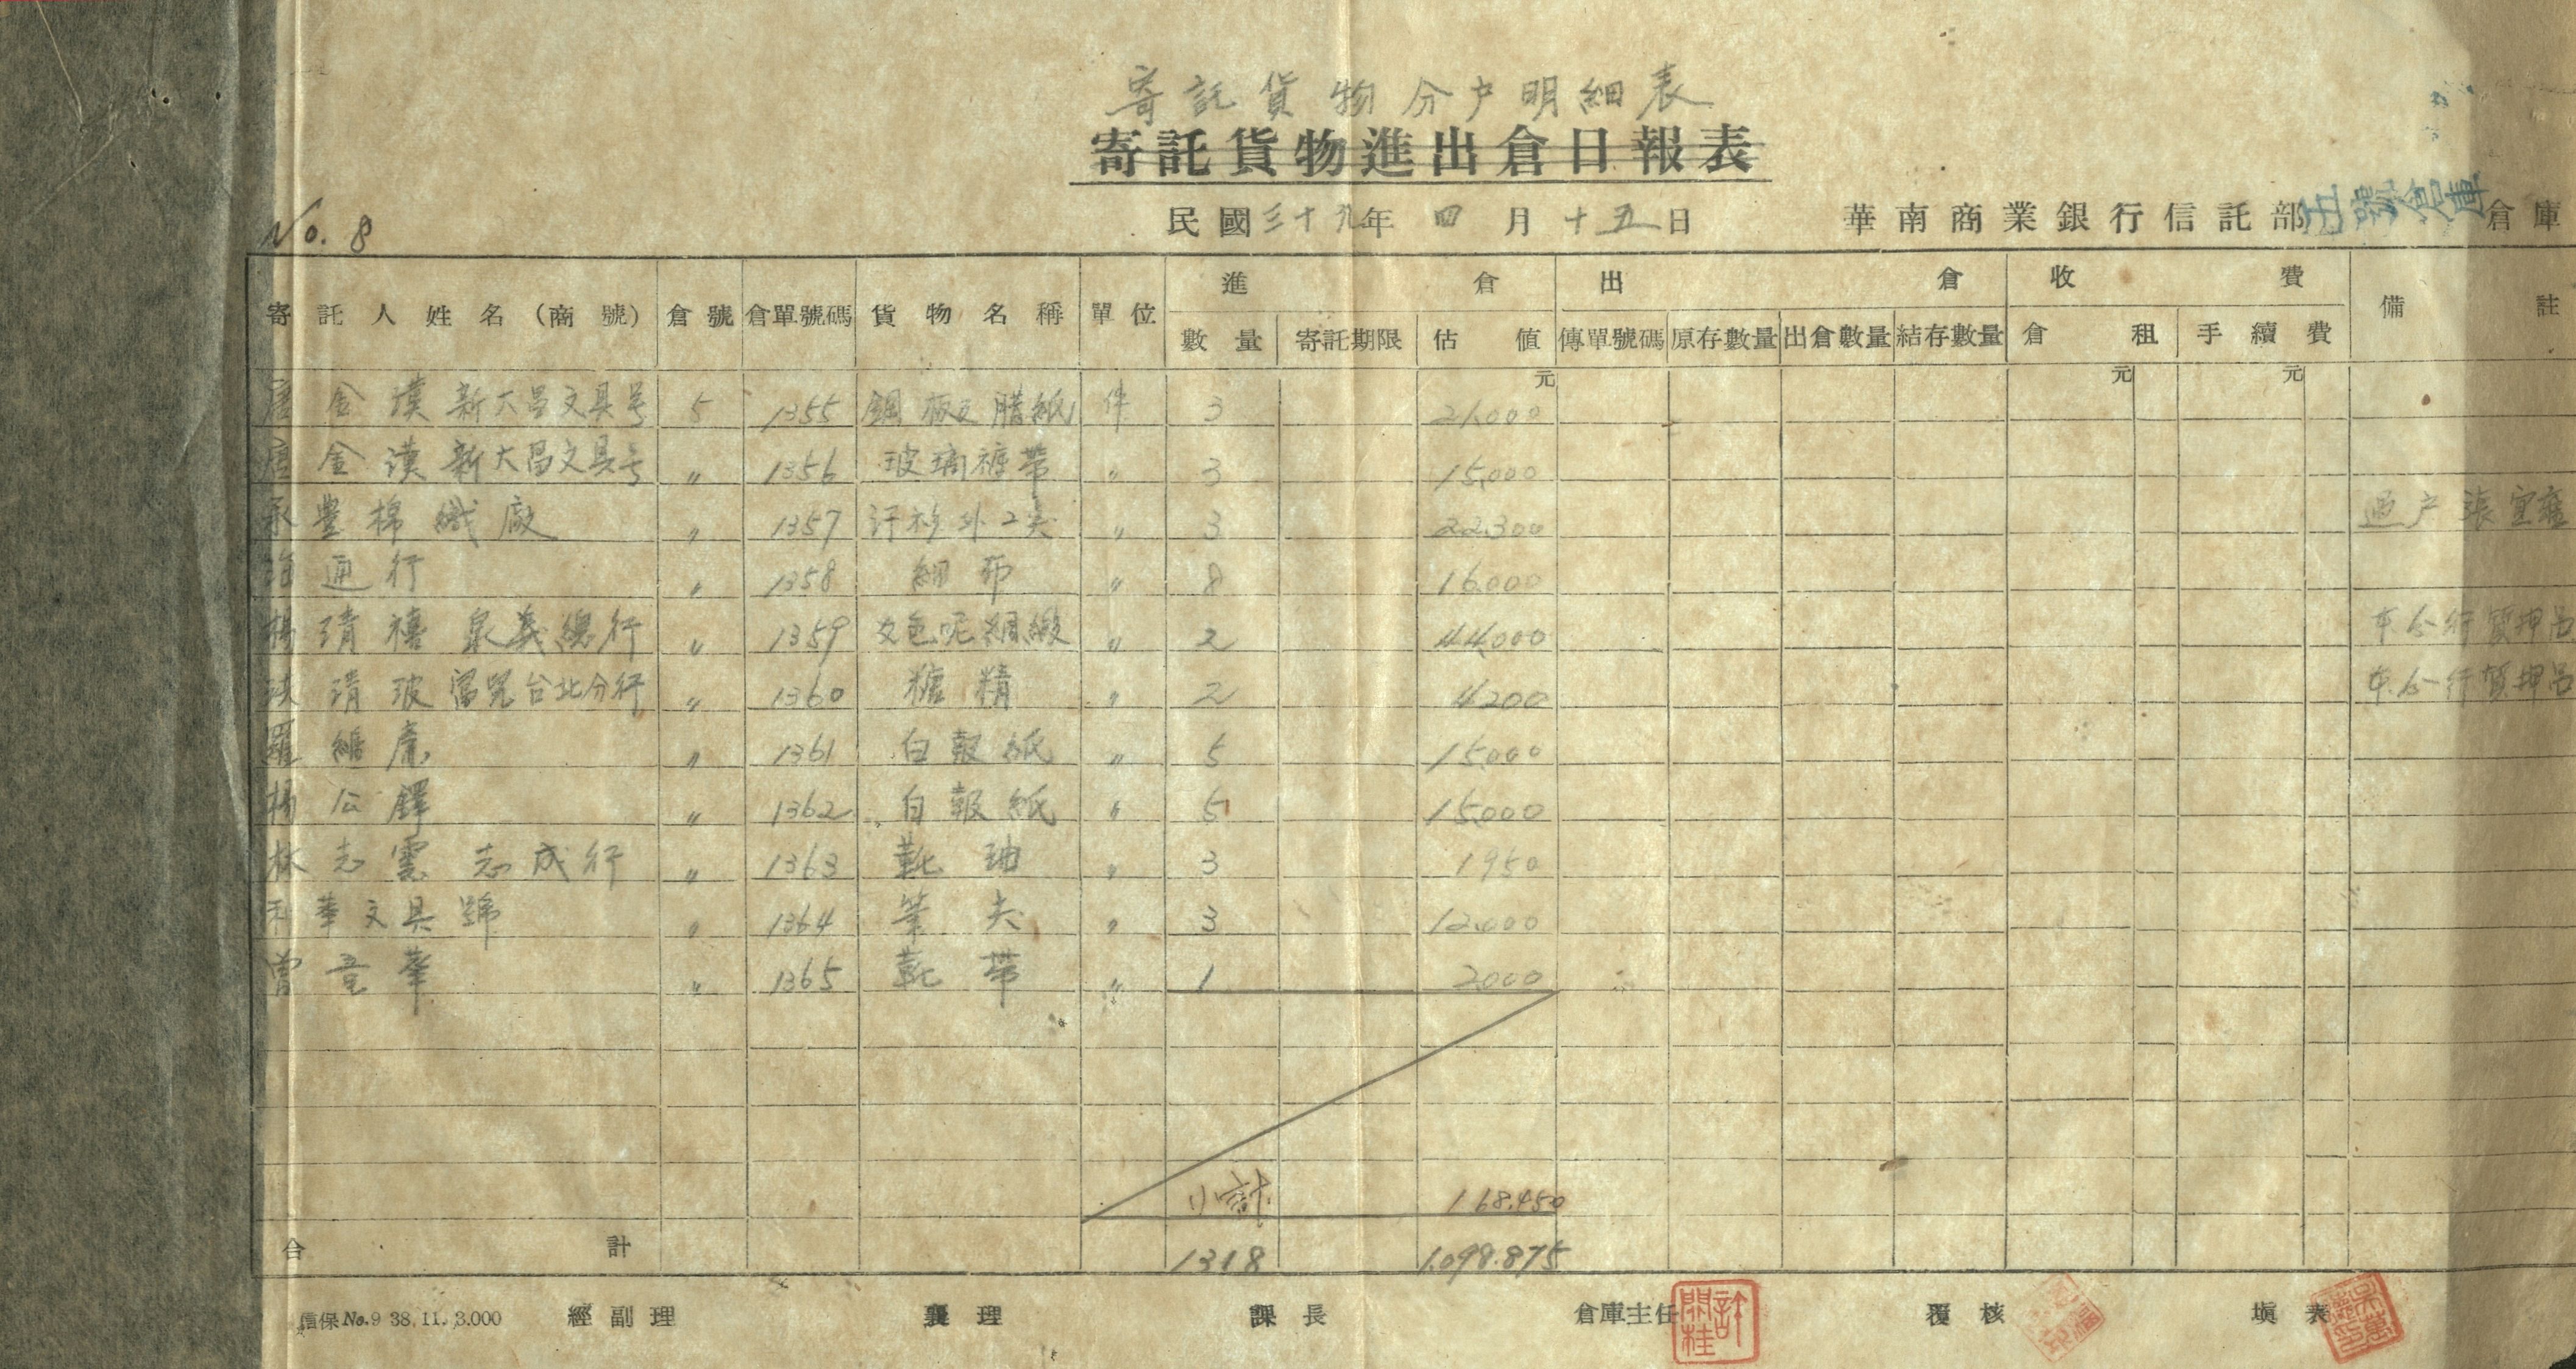 寄託貨物分户明細表
寄託貨物進出倉日報表
No. 8
民國三十九年 四月十五日 華南商業銀行信託部 五號倉庫 倉庫
寄託人姓名(商號) 倉號 倉單號碼 貨物名稱 單位 進倉 出倉 收費 備註
數量 寄託期限 估值 傳單號碼 原存數量 出倉數量 結存數量 倉租 手續費
元 元 元
唐金漢 新大昌文具号 5 1355 鋼板及腊紙 件 3 21.000
唐金漢 新大昌文具号 〃 1356 玻璃褲帶 〃 3 15.000
永豊棉織廠 〃 1357 汗衫外2夾 〃 3 22.300 過户張
通行 〃 1358 細布 〃 8 16.000
楊清禧 泉義總行 〃 1359 女色呢綢緞 〃 2 44.000 行質押品
清玻 台北分行 〃 1360 糖精 〃 2 4200 行質押品
羅維 〃 1361 白報紙 〃 5 15.000
楊公鐸 〃 1362 白報紙 〃 5 15.000
林志雲 志成行 〃 1363 靴油 〃 3 1950
利華文具號 〃 1364 筆夾 〃 3 12.000
曾華 〃 1365 靴帶 〃 1 2000
小計 168.450
合計 1318 1.098.875
信保No.9 38.11.3.000 經副理 襄理 課長 倉庫主任 許開桂 覆核 填表